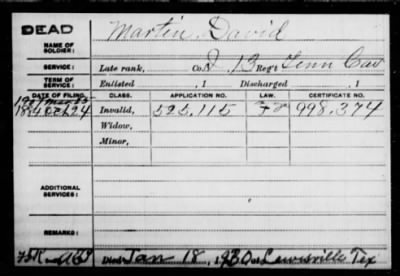 DEAD
NAME OF
SOLDIER:
Martin, David
SERVICE:
Late rank, Co. I, 13 Reg't Tenn Cav
TERM OF
SERVICE:
Enlisted , 1 Discharged , 1
DATE OF FILING.
CLASS.
APPLICATION NO.
LAW.
CERTIFICATE NO.
1884 Oct 24
Invalid,
525,115
998,374
Widow,
Minor,
ADDITIONAL
SERVICES:
REMARKS:
Died Jan 18, 1930 at Lewisville Tex